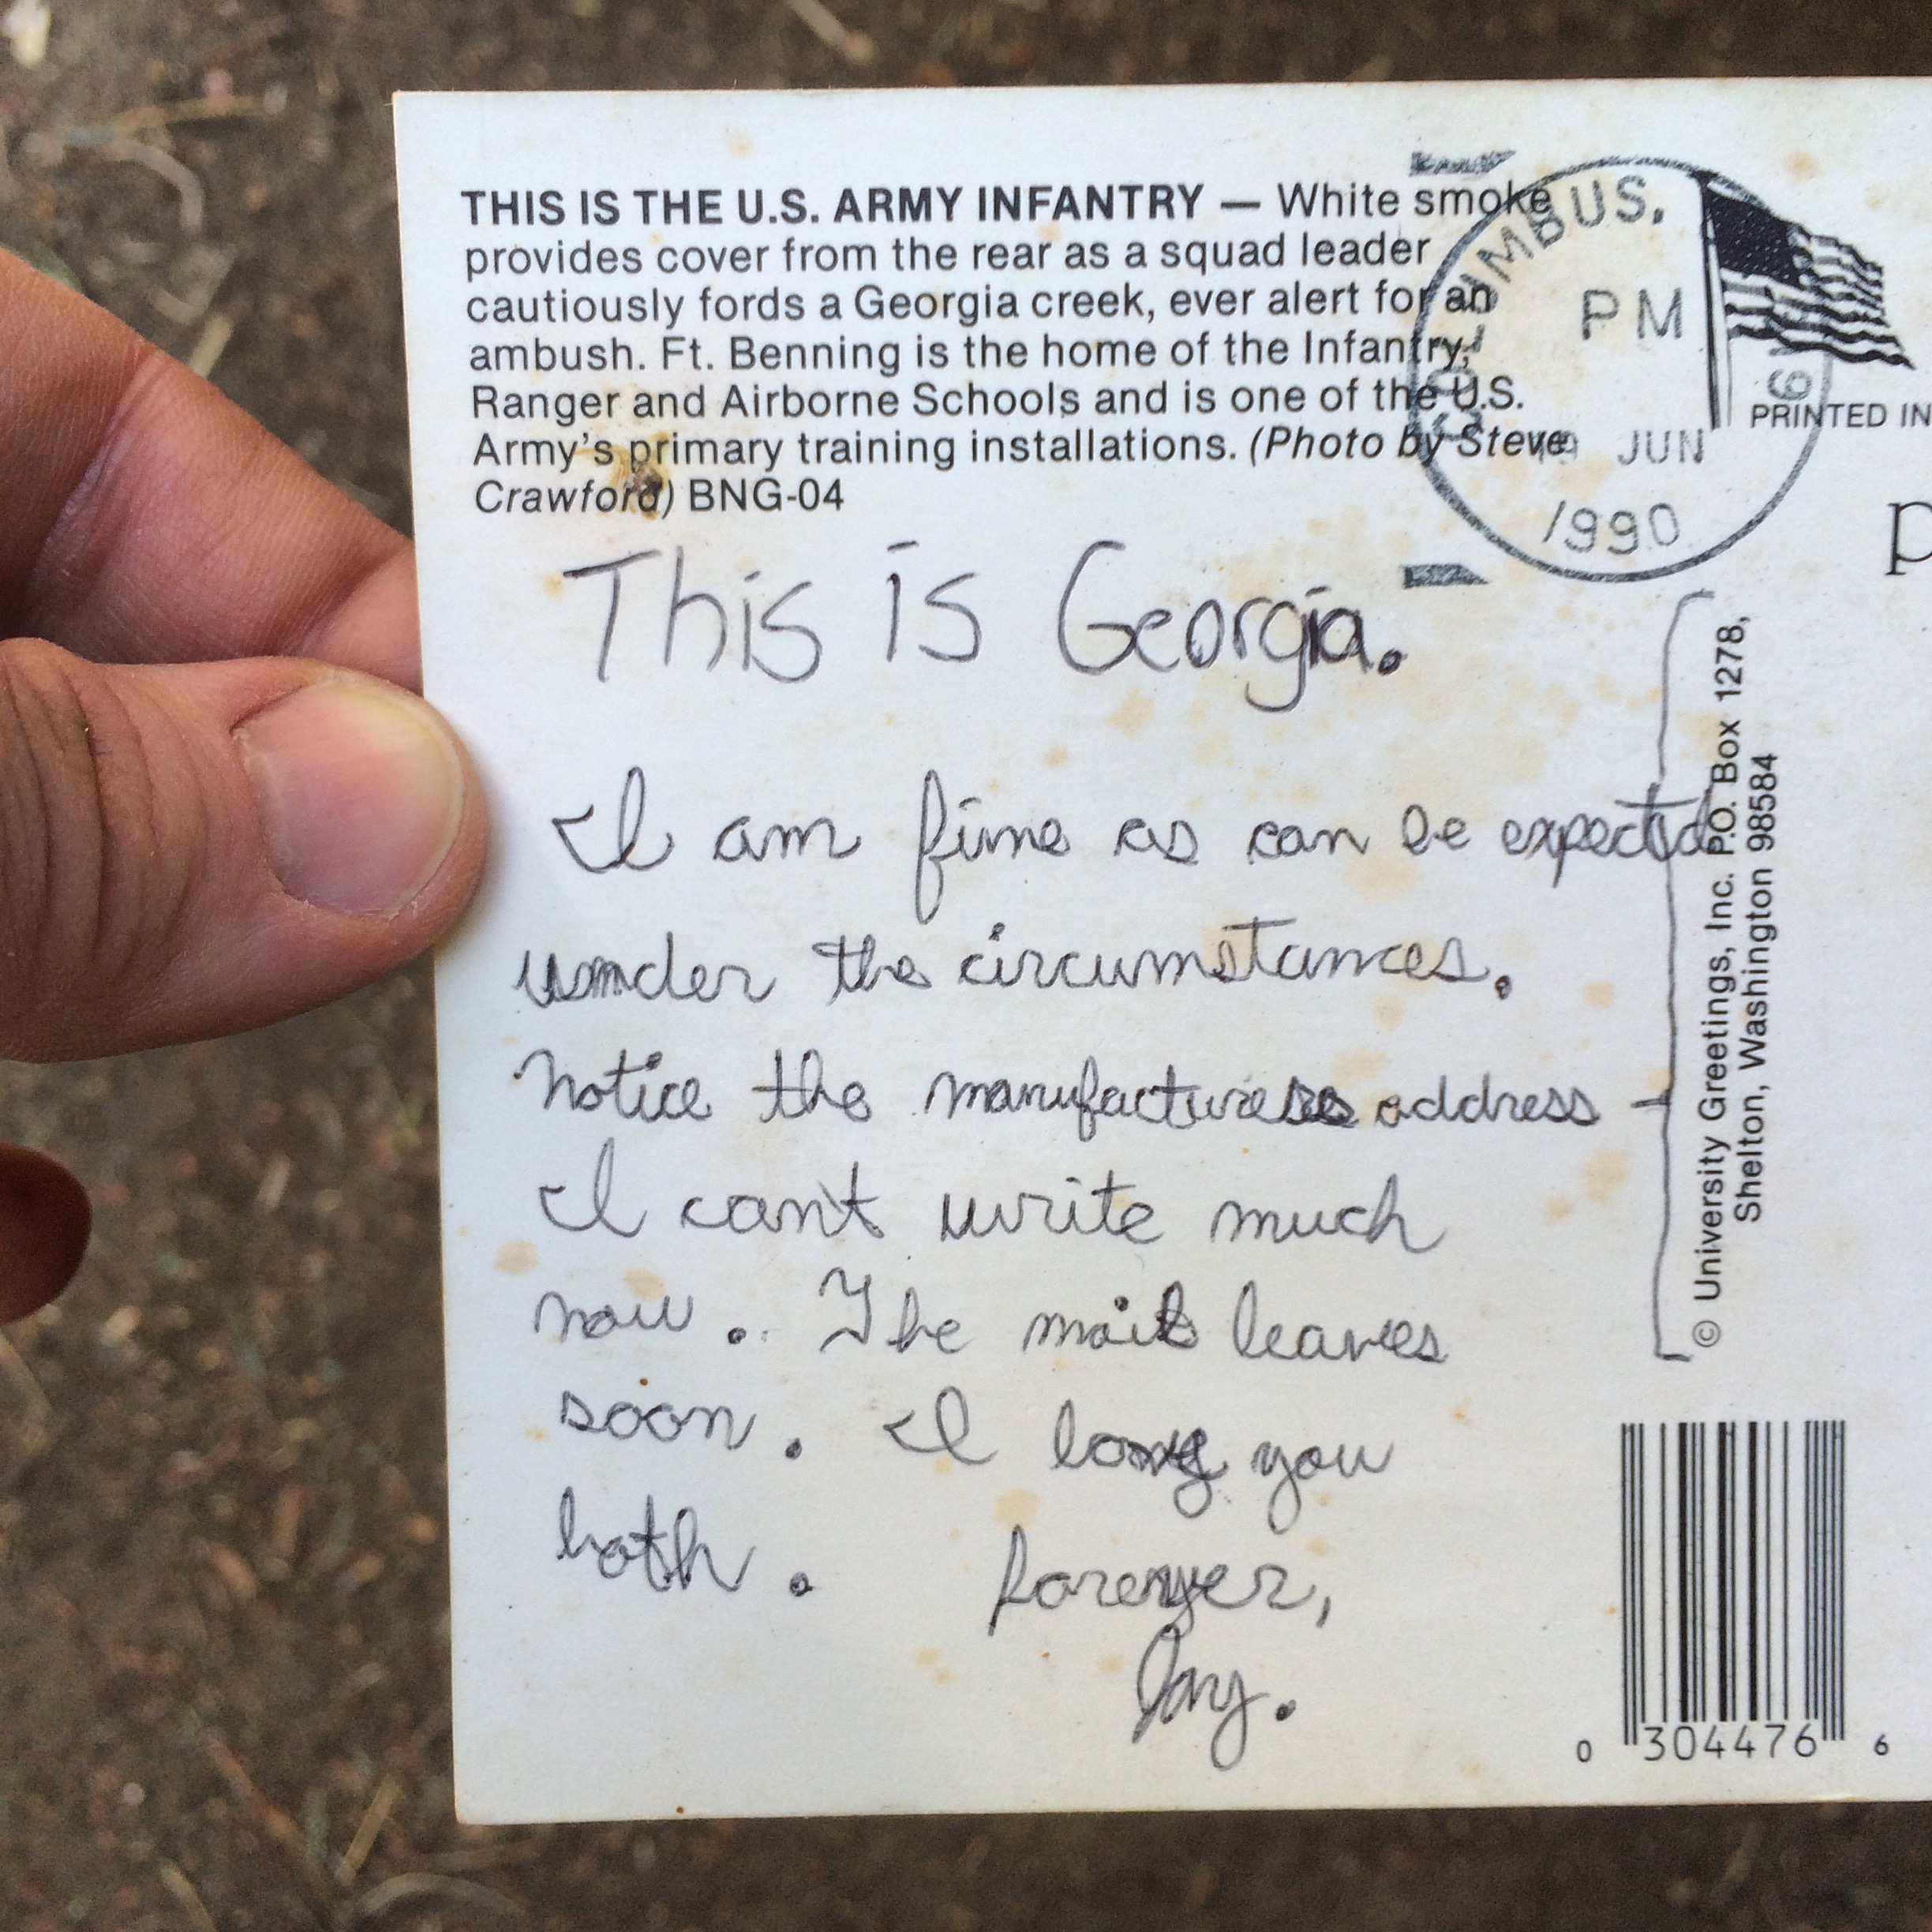 THIS IS THE U.S. ARMY INFANTRY — White smoke
provides cover from the rear as a squad leader
cautiously fords a Georgia creek, ever alert for an
ambush. Ft. Benning is the home of the Infantry,
Ranger and Airborne Schools and is one of the U.S.
Army's primary training installations. (Photo by Steve
Crawford) BNG-04
COLUMBUS, GA
PM
19 JUN
1990
PRINTED IN
p
This is Georgia.
I am fine as can be expected
under the circumstances.
Notice the manufacturers address
I can't write much
now. The mail leaves
soon. I love you
both. forever,
Jay.
© University Greetings, Inc. P.O. Box 1278,
Shelton, Washington 98584
0 304476 6